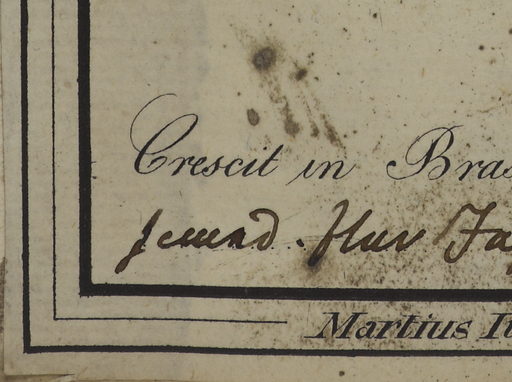 Crescit in Bras
secund. fluv Ja
Martius It